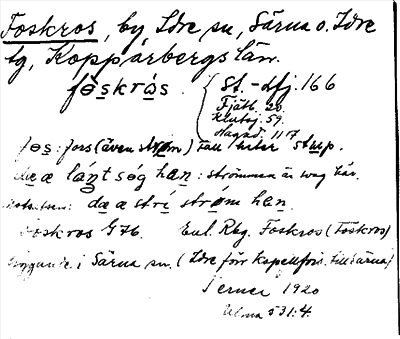 Foskros, by Idre sn, Särna o. Idre
tg, Kopparbergs län.
fɵskrås. St.-dfj. 166
Fjätb. 20.
Klutsj. 59.
Hagad. 117
fɵs: fors (även strøm) fall heter stup.
dææ lántség han: strömmen är weg här.
dææ stri strøm han.
Foskros G76. Enl. Reg. Foskros (Föskros)
byggande i Särna sn. (Idre förr kapellförs. till Särna)
Jerner 1920
Ulma 531:4.